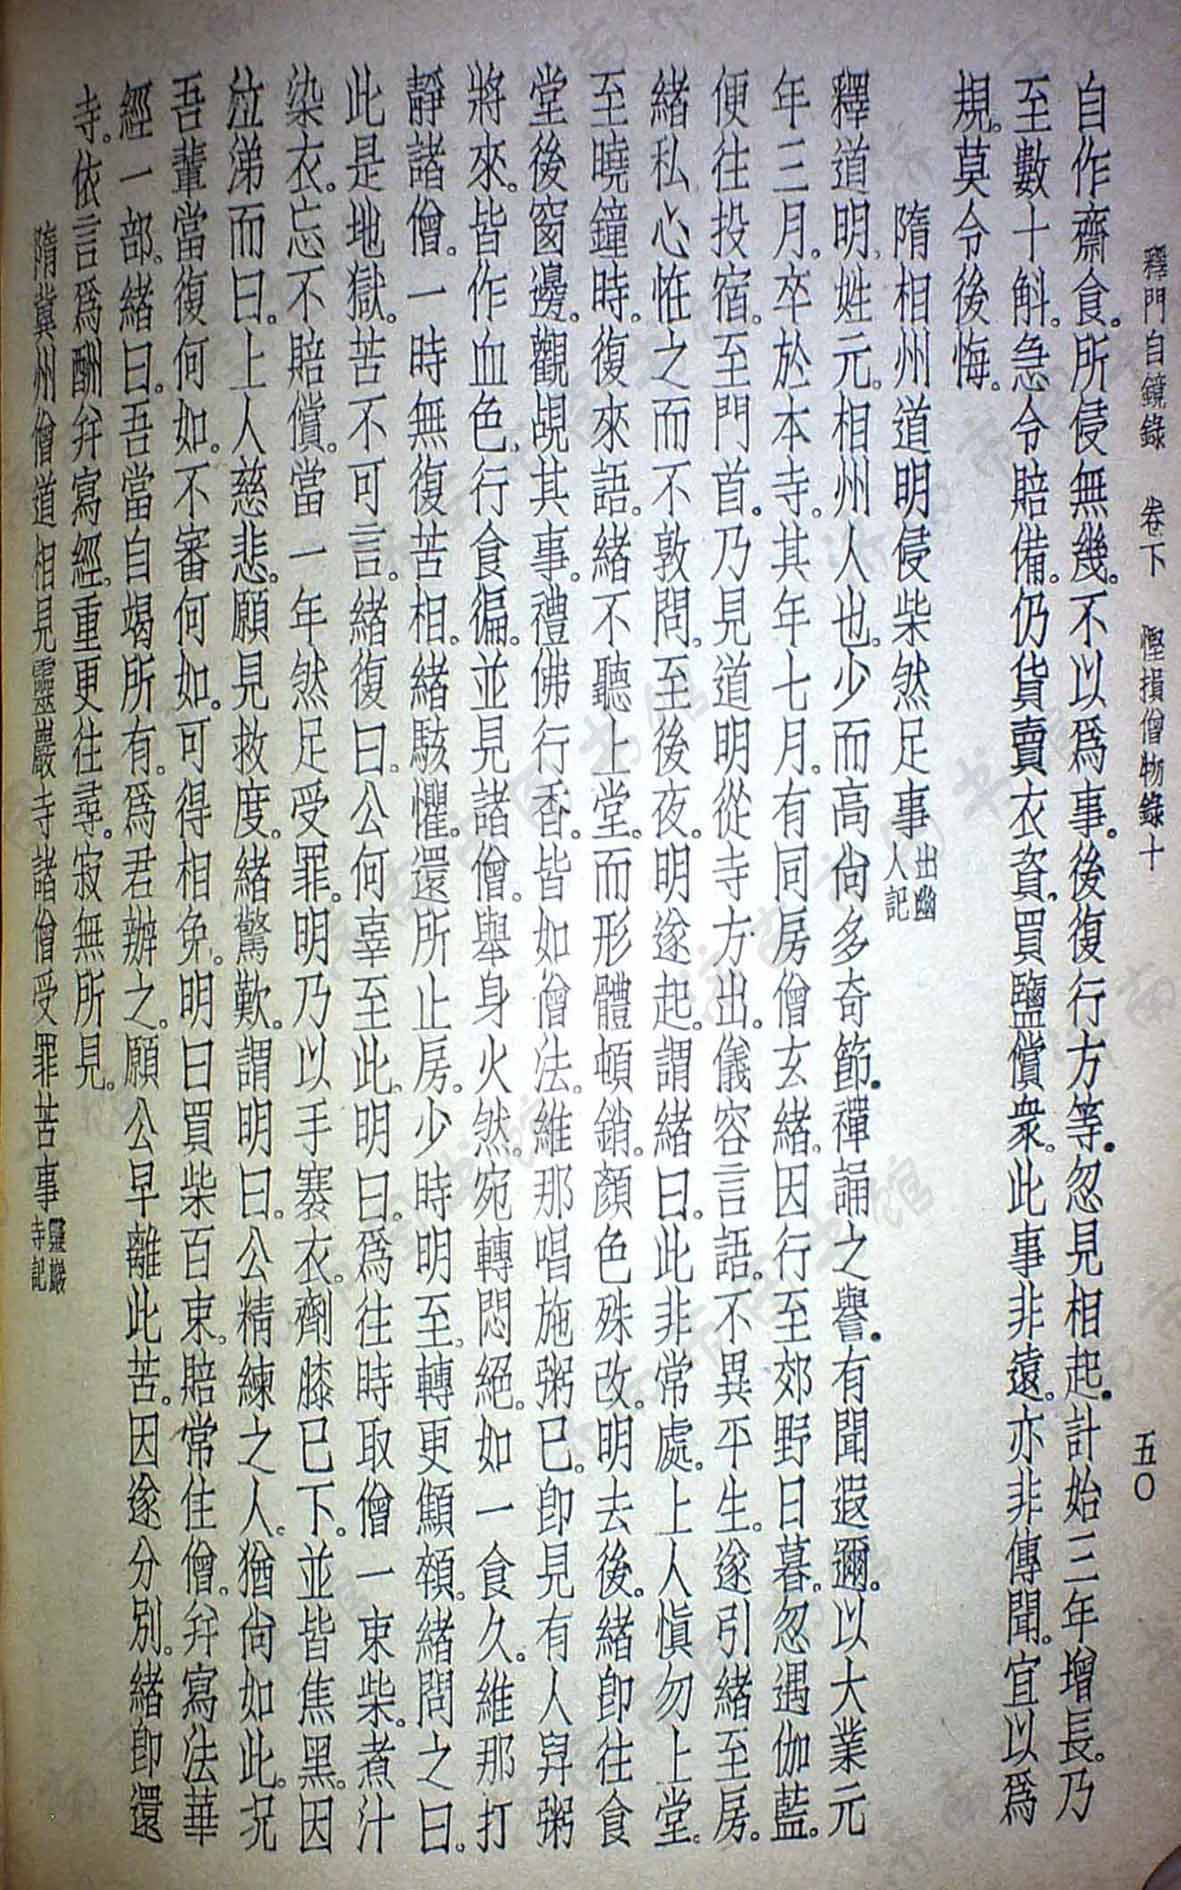 釋門自鏡錄　卷下　慳損僧物錄十　五〇
自作齋食。所侵無幾。不以爲事。後復行方等。忽見相起。計始三年增長。乃
至數十斛。急令賠備。仍貨賣衣資。買鹽償衆。此事非遠。亦非傳聞。宜以爲
規。莫令後悔。
隋相州道明侵柴然足事出幽人記
釋道明。姓元。相州人也。少而高尙多奇節。禪誦之譽。有聞遐邇。以大業元
年三月。卒於本寺。其年七月。有同房僧玄緒。因行至郊野日暮。忽遇伽藍。
便往投宿。至門首。乃見道明從寺方出。儀容言語。不異平生。遂引緒至房。
緒私心恠之而不敦問。至後夜。明遂起。謂緒曰。此非常處。上人愼勿上堂。
至曉鐘時。復來語。緒不聽上堂。而形體頓銷。顏色殊改。明去後。緒卽往食
堂後窗邊。觀覘其事。禮佛行香。皆如僧法。維那唱施粥已。卽見有人舁粥
將來。皆作血色。行食徧。並見諸僧。舉身火然。宛轉悶絕。如一食久。維那打
靜諸僧。一時無復苦相。緒駭懼。還所止房。少時明至。轉更顦顇。緒問之曰。
此是地獄。苦不可言。緒復曰。公何辜至此。明曰。爲往時取僧一束柴。煮汁
染衣。忘不賠償。當一年然足受罪。明乃以手褰衣。劑膝已下。並皆焦黑。因
泣涕而曰。上人慈悲。願見救度。緒驚歎。謂明曰。公精練之人。猶尙如此。況
吾輩當復何如。不審何如。可得相免。明曰買柴百束。賠常住僧。幷寫法華
經一部。緒曰。吾當自竭所有。爲君辦之。願公早離此苦。因遂分別。緒卽還
寺。依言爲酬幷寫經。重更往尋。寂無所見。
隋冀州僧道相見靈巖寺諸僧受罪苦事靈巖寺記